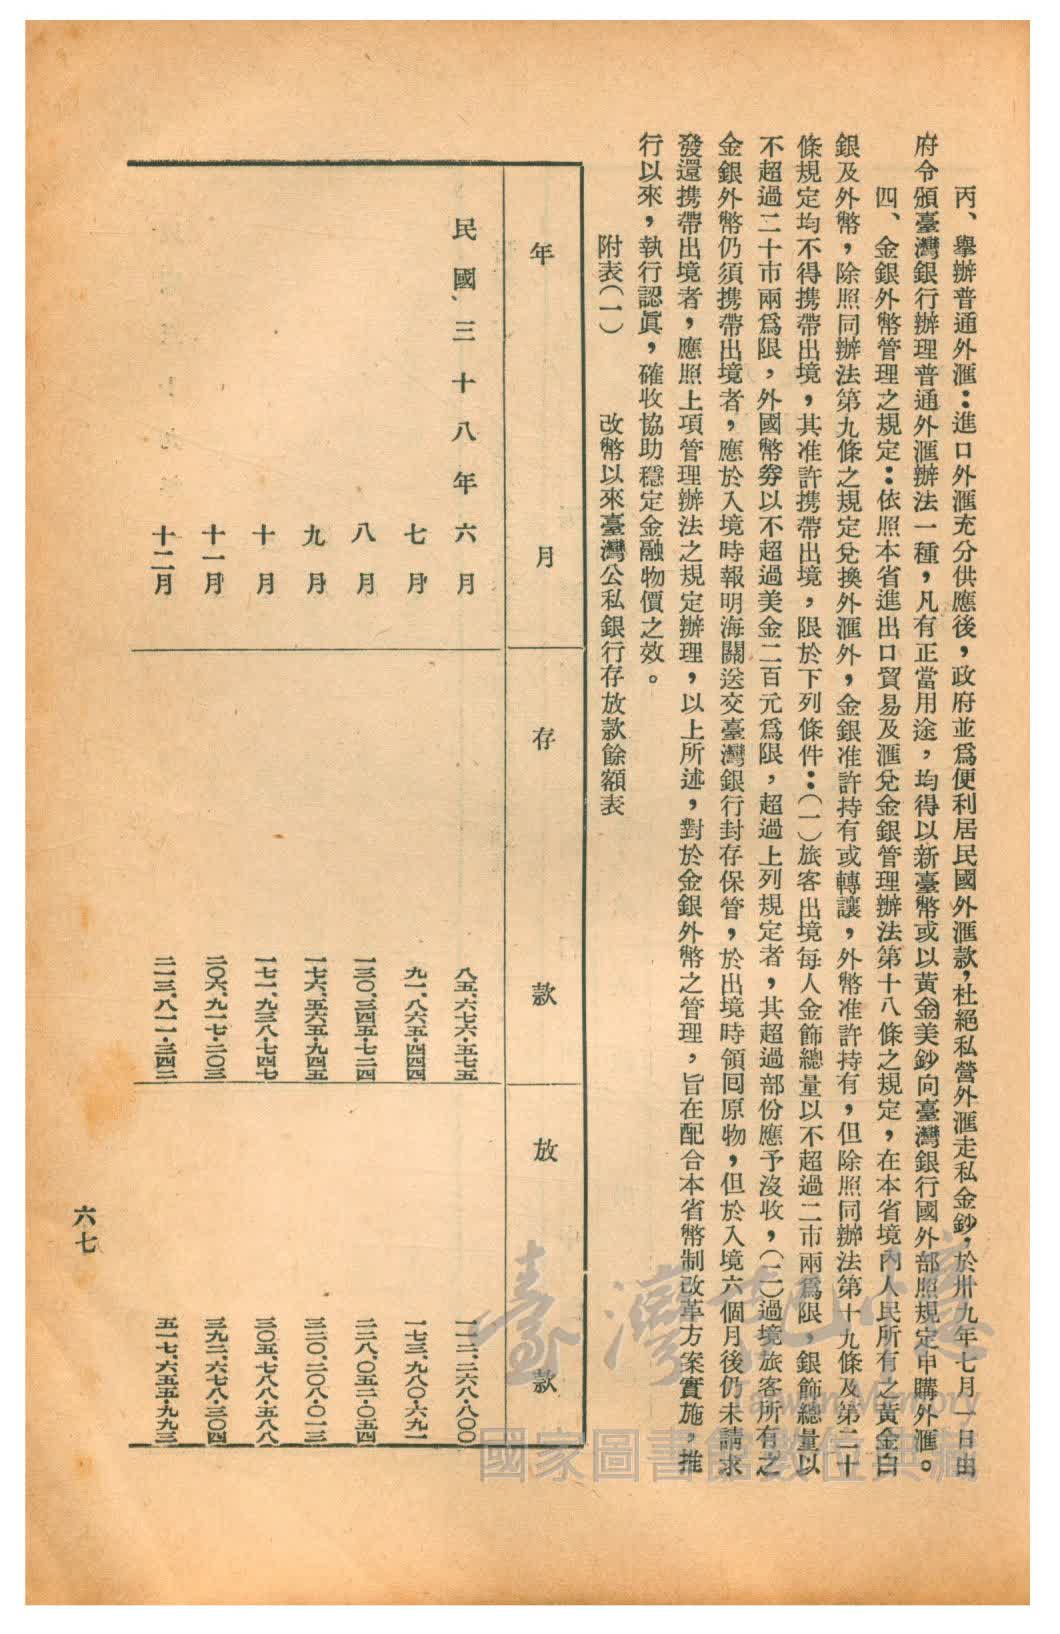 丙、舉辦普通外滙：進口外滙充分供應後，政府並爲便利居民國外滙款，杜絕私營外滙走私金鈔，於卅九年七月一日由
府令頒臺灣銀行辦理普通外滙辦法一種，凡有正當用途，均得以新臺幣或以黃金美鈔向臺灣銀行國外部照規定申購外滙。
四、金銀外幣管理之規定：依照本省進出口貿易及滙兌金銀管理辦法第十八條之規定，在本省境內人民所有之黃金白
銀及外幣，除照同辦法第九條之規定兌換外滙外，金銀准許持有或轉讓，外幣准許持有，但除照同辦法第十九條及第二十
條規定均不得携帶出境，其准許携帶出境，限於下列條件：(一)旅客出境每人金飾總量以不超過二市兩爲限，銀飾總量以
不超過二十市兩爲限，外國幣券以不超過美金二百元爲限，超過上列規定者，其超過部份應予沒收，(二)過境旅客所有之
金銀外幣仍須携帶出境者，應於入境時報明海關送交臺灣銀行封存保管，於出境時領囘原物，但於入境六個月後仍未請求
發還携帶出境者，應照上項管理辦法之規定辦理，以上所述，對於金銀外幣之管理，旨在配合本省幣制改革方案實施，推
行以來，執行認眞，確收協助穩定金融物價之效。
附表(一)　改幣以來臺灣公私銀行存放款餘額表
年　月　存　款　放　款
民國、三十八年六月　八五、六七六・五七五　一一二、二六八・八〇〇
七月　九一、八六五・四四四　一七三、九八〇・六九一
八月　一三〇、三四五・七二四　二二八、〇五二・〇五四
九月　一七六、五六五・九四五　三二〇、二〇八・〇一三
十月　一七一、九三八・七四七　三〇五、七八八・五八八
十一月　二〇六、九一七・二〇三　三九二、六七八・三〇四
十二月　二一三、八一一・三四二　五一七、六五五・九九三
六七
臺灣記憶
Taiwan Memory
國家圖書館數位典藏